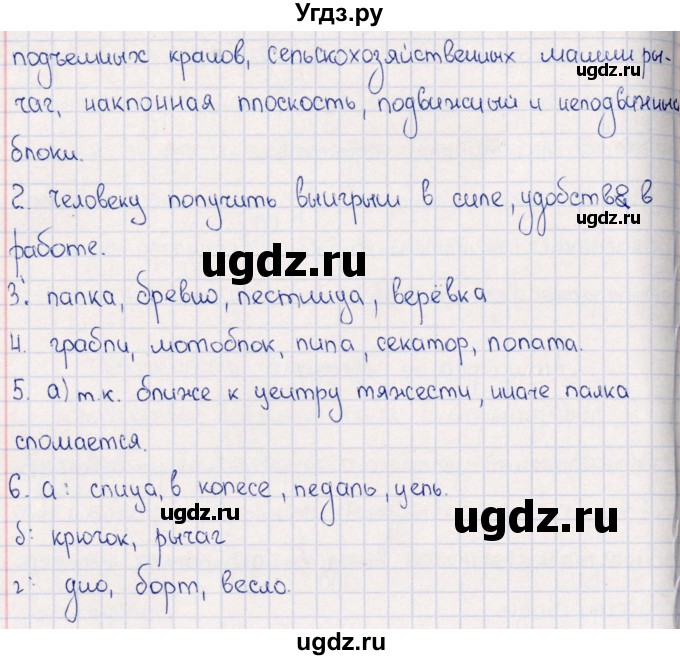 Угдз.ру
подъемных кранов, сельскохозяйственных машин ры-
ugdz.ru
чаг, наклонная плоскость, подвижный и неподвижные
блоки.
2. Человеку получить выигрыш в силе, удобства в
ugdz.ru
работе.
ugdz.ru
3. палка, бревно, лестница, верёвка
4. грабли, мотоблок, пила, секатор, лопата.
5. а) т.к. ближе к центру тяжести, иначе палка
сломается.
6. а: спица, в колесе, педаль, цепь.
ugdz.ru
ugdz.ru
б: крючок, рычаг
г: дно, борт, весло.
ugdz.ru